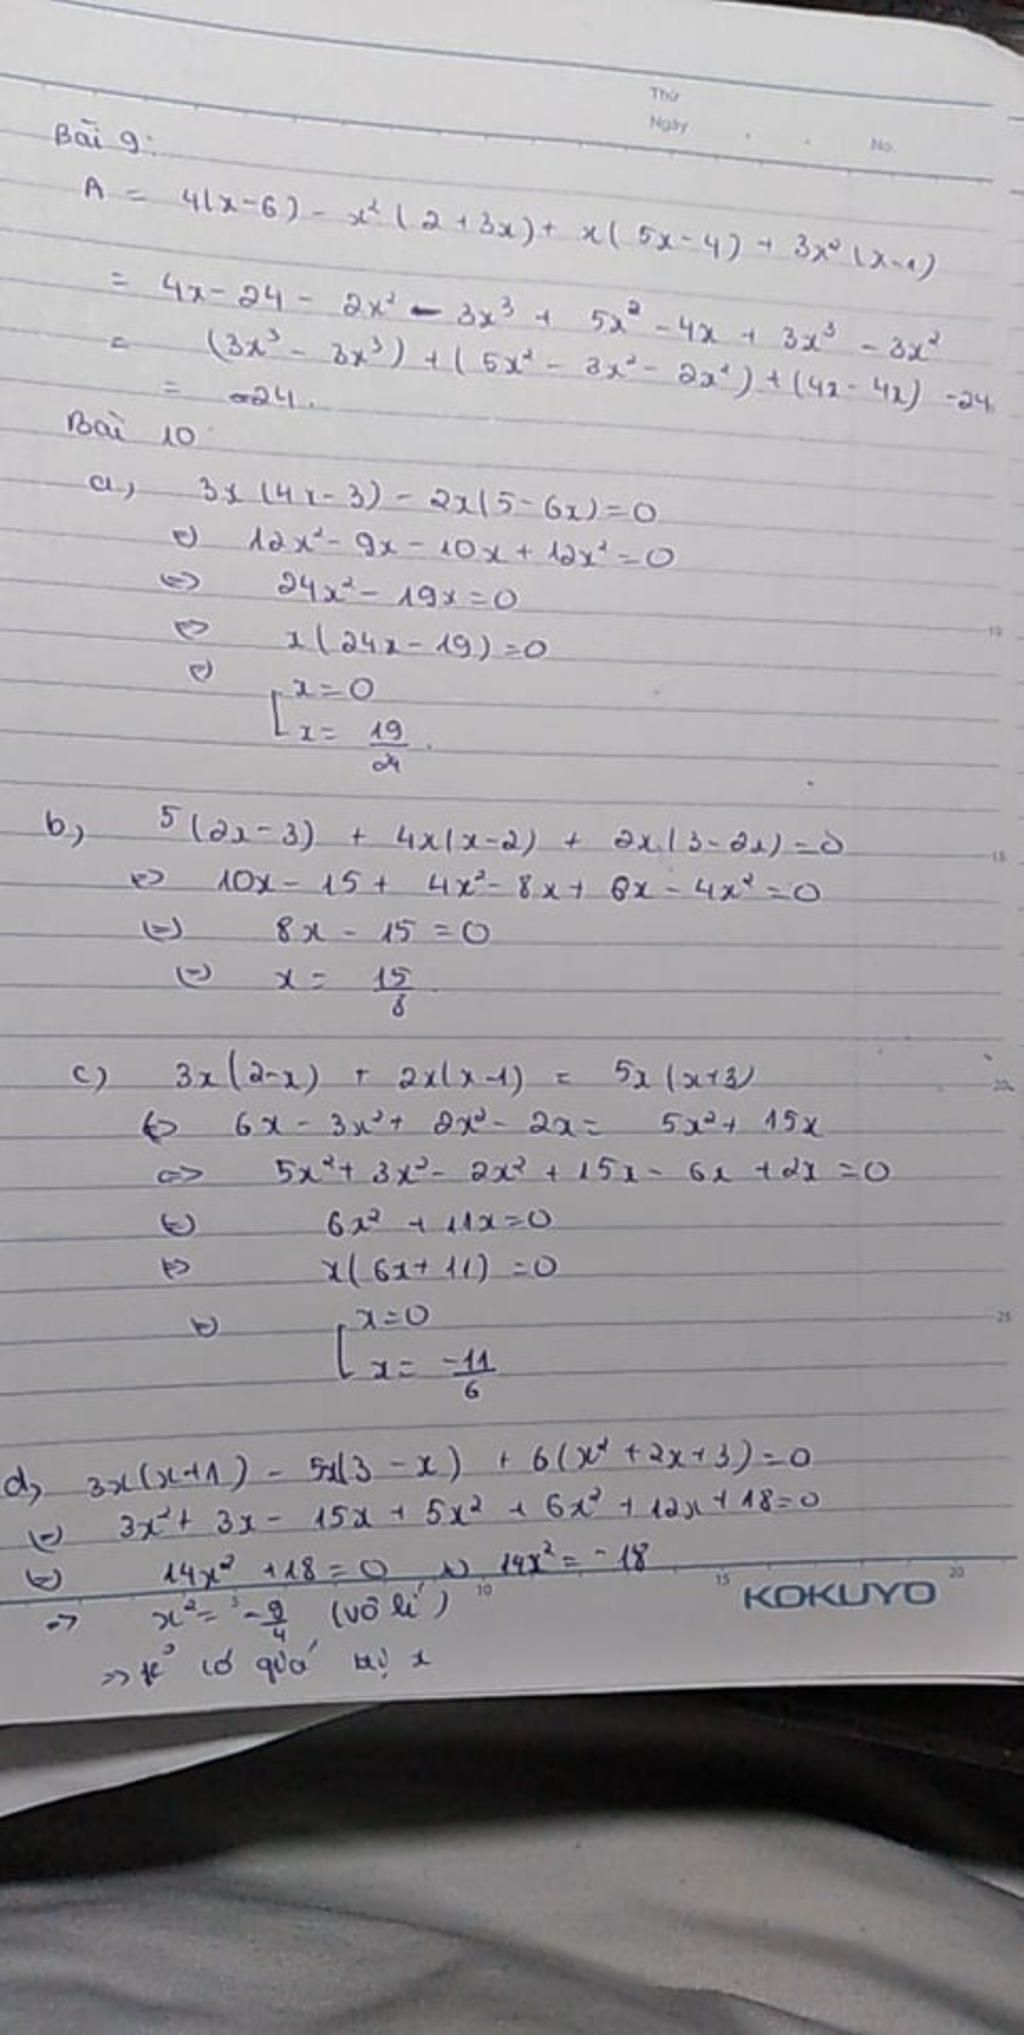 Thứ
Ngày
No.
Bài 9:
A = 4(x-6) - x² (2+3x) + x(5x-4) + 3x² (x-1)
= 4x-24 - 2x² - 3x³ + 5x² - 4x + 3x³ - 3x²
= (3x³ - 3x³) + (5x² - 3x² - 2x²) + (4x - 4x) -24
= -24.
Bài 10
a, 3x(4x-3) - 2x(5-6x)=0
⇔ 12x² - 9x - 10x + 12x² = 0
⇔ 24x² - 19x = 0
⇔ x(24x - 19) = 0
⇔ [ x=0
x = 19/24.
b, 5(2x-3) + 4x(x-2) + 2x(3-2x) = 0
⇔ 10x - 15 + 4x² - 8x + 6x - 4x² = 0
⇔ 8x - 15 = 0
⇔ x = 15/8
c) 3x(2-x) + 2x(x-1) = 5x(x+3)
⇔ 6x - 3x² + 2x² - 2x = 5x² + 15x
⇔ 5x² + 3x² - 2x² + 15x - 6x + 2x = 0
⇔ 6x² + 11x = 0
⇔ x(6x + 11) = 0
⇔ [ x=0
x = -11/6
d, 3x(x+1) - 5x(3-x) + 6(x² + 2x + 3) = 0
⇔ 3x² + 3x - 15x + 5x² + 6x² + 12x + 18 = 0
⇔ 14x² + 18 = 0 ⇔ 14x² = -18
⇒ x² = -9/4 (vô lí)
⇒ k° có giá trị x
10 15 20 25
10 15 20
KOKUYO